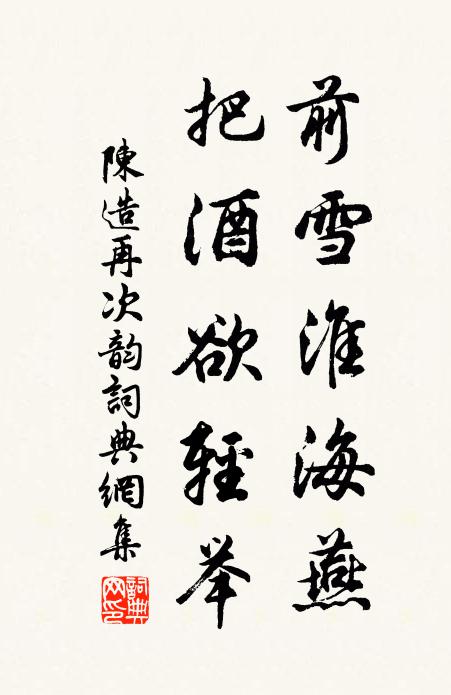 前雪淮海燕
把酒欲輕举
陳造再次韵詞典網集
詞典网印